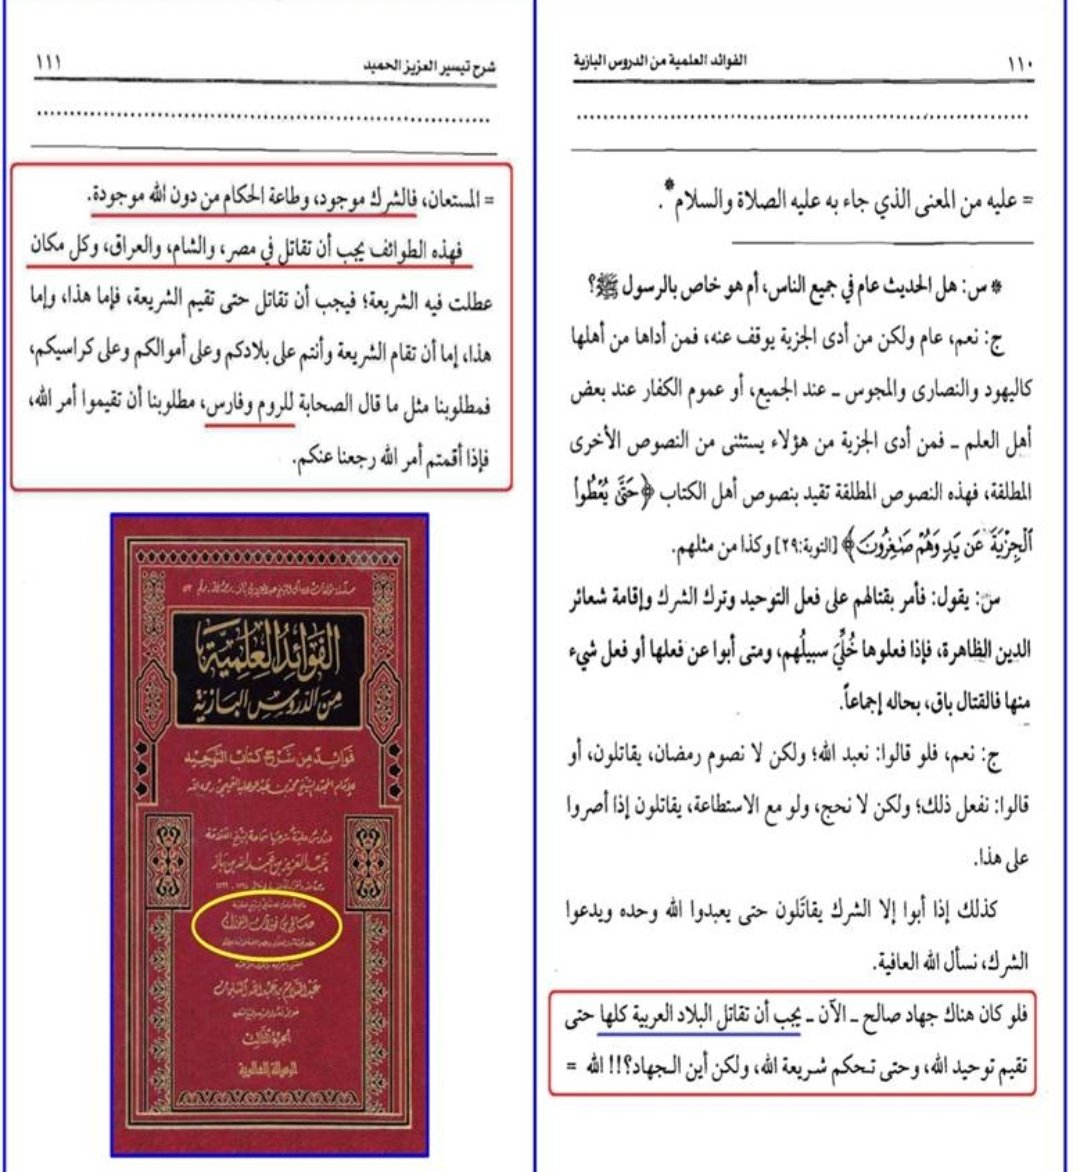 ١١٠
الفوائد العلمية من الدروس البازية
= عليه من المعنى الذي جاء به عليه الصلاة والسلام*.
* س: هل الحديث عام في جميع الناس، أم هو خاص بالرسول ﷺ؟
ج: نعم، عام ولكن من أدى الجزية يوقف عنه، فمن أداها من أهلها
كاليهود والنصارى والمجوس ـ عند الجميع، أو عموم الكفار عند بعض
أهل العلم ـ فمن أدى الجزية من هؤلاء يستثنى من النصوص الأخرى
المطلقة، فهذه النصوص المطلقة تقيد بنصوص أهل الكتاب ﴿حَتَّىٰ يُعْطُوا۟
ٱلْجِزْيَةَ عَن يَدٍ وَهُمْ صَٰغِرُونَ﴾ [التوبة:٢٩] وكذا من مثلهم.
س: يقول: فأمر بقتالهم على فعل التوحيد وترك الشرك وإقامة شعائر
الدين الظاهرة، فإذا فعلوها خُلِّيَ سبيلُهم، ومتى أبوا عن فعلها أو فعل شيء
منها فالقتال باق، بحاله إجماعاً.
ج: نعم، فلو قالوا: نعبد الله؛ ولكن لا نصوم رمضان، يقاتلون، أو
قالوا: نفعل ذلك؛ ولكن لا نحج، ولو مع الاستطاعة، يقاتلون إذا أصروا
على هذا.
كذلك إذا أبوا إلا الشرك يقاتَلون حتى يعبدوا الله وحده ويدعوا
الشرك، نسأل الله العافية.
فلو كان هناك جهاد صالح ـ الآن ـ يجب أن تقاتل البلاد العربية كلها حتى
تقيم توحيد الله، وحتى تحكم شريعة الله، ولكن أين الجهاد؟!! الله =
شرح تيسير العزيز الحميد
١١١
= المستعان، فالشرك موجود، وطاعة الحكام من دون الله موجودة.
فهذه الطوائف يجب أن تقاتل في مصر، والشام، والعراق، وكل مكان
عطلت فيه الشريعة؛ فيجب أن تقاتل حتى تقيم الشريعة، فإما هذا، وإما
هذا، إما أن تقام الشريعة وأنتم على بلادكم وعلى أموالكم وعلى كراسيكم،
فمطلوبنا مثل ما قال الصحابة للروم وفارس، مطلوبنا أن تقيموا أمر الله،
فإذا أقمتم أمر الله رجعنا عنكم.
الفَوائِدُ العِلميَّة
مِنَ الدُّرُوسِ البازيَّة
فوائد من شرح كتاب التوحيد
عبد العزيز بن عبد الله بن باز
صالح بن فوزان الفوزان
عبد السلام بن عبد الله السليمان
الجزء الثالث
الرسالة العالمية